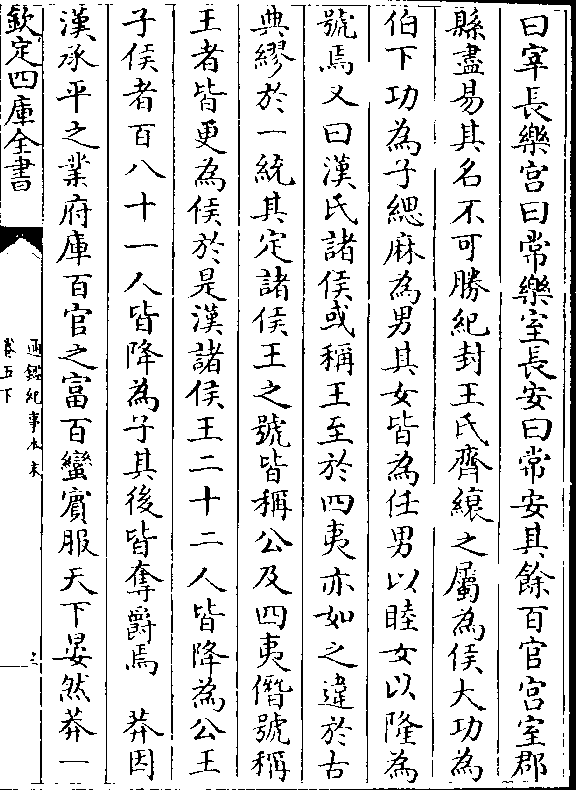 曰宰長樂宫曰常樂室長安曰常安其餘百官宫室郡
縣盡易其名不可勝紀封王氏齊縗之屬為侯大功為
伯下功為子緦麻為男其女皆為任男以睦女以隆為
號焉又曰漢氏諸侯或稱王至於四夷亦如之違於古
典繆於一統其定諸侯王之號皆稱公及四夷僭號稱
王者皆更為侯於是漢諸侯王二十二人皆降為公王
子侯者百八十一人皆降為子其後皆奪爵焉 莽因
漢承平之業府庫百官之富百蠻賓服天下晏然莽一
欽定四庫全書
通鑑紀事本末
卷五下